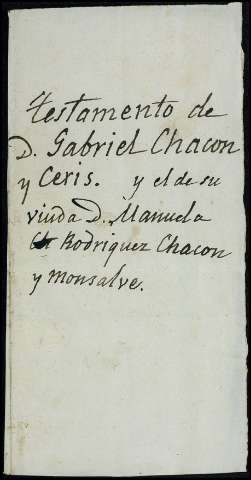 testamento de
D. Gabriel Chacon
y Ceris. y el de su
viuda D. Manuela
Rodriquez Chacon
y Monsalve.